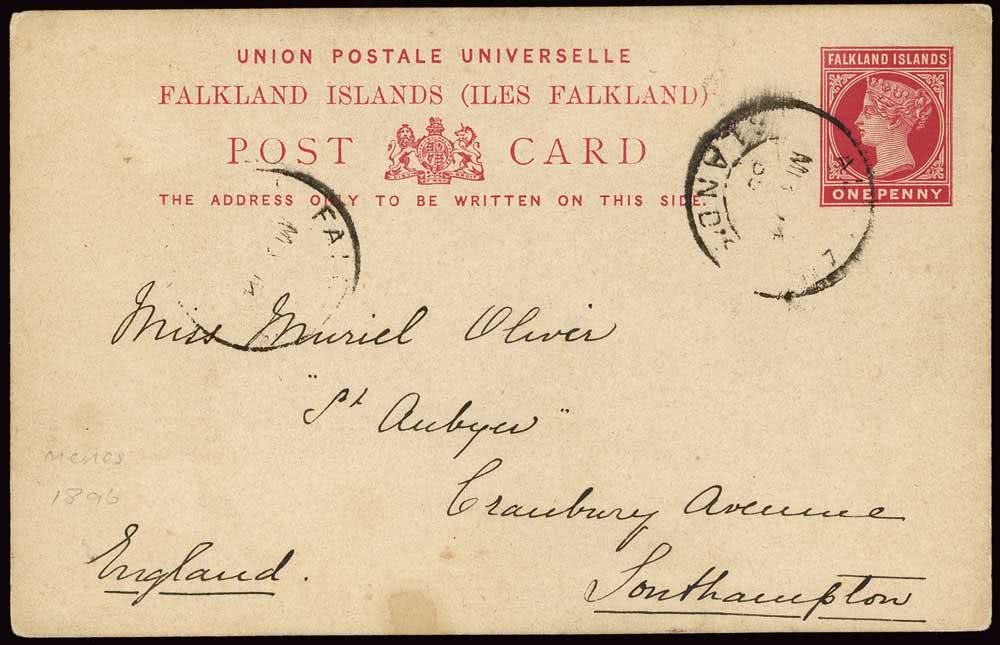 UNION POSTALE UNIVERSELLE
FALKLAND ISLANDS (ILES FALKLAND)
POST CARD
THE ADDRESS ONLY TO BE WRITTEN ON THIS SIDE.
FALKLAND ISLANDS
ONE PENNY
Miss Muriel Oliver
"St Aubyn"
Cranbury Avenue
Southampton
England.
1896